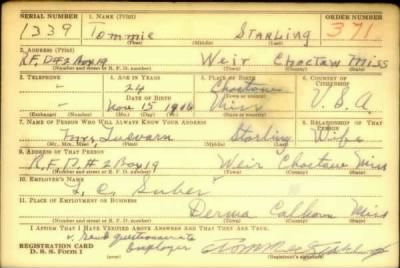 SERIAL NUMBER 1. NAME (Print) ORDER NUMBER
1339 Tommie Starling 371
(First) (Middle) (Last)
2. ADDRESS (Print)
R.F.D.#2 Box 19 Weir Choctaw Miss
(Number and street or R. F. D. number) (Town) (County) (State)
3. TELEPHONE 4. AGE IN YEARS 5. PLACE OF BIRTH 6. COUNTRY OF CITIZENSHIP
- 24 Choctaw
DATE OF BIRTH (Town or county)
- Nov 15 1916 Miss U.S.A.
(Exchange) (Number) (Mo.) (Day) (Yr.) (State or country)
7. NAME OF PERSON WHO WILL ALWAYS KNOW YOUR ADDRESS 8. RELATIONSHIP OF THAT PERSON
Mrs. Starling Wife
(Mr., Mrs., Miss) (First) (Middle) (Last)
9. ADDRESS OF THAT PERSON
R.F.D.#2 Box 19 Weir Choctaw Miss
(Number and street or R. F. D. number) (Town) (County) (State)
10. EMPLOYER'S NAME
Suber
11. PLACE OF EMPLOYMENT OR BUSINESS
Derma Calhoun Miss
(Number and street or R. F. D. number) (Town) (County) (State)
I AFFIRM THAT I HAVE VERIFIED ABOVE ANSWERS AND THAT THEY ARE TRUE.
send questionnaire
REGISTRATION CARD employer Tommie Starling
D. S. S. Form 1 (Registrant's signature)